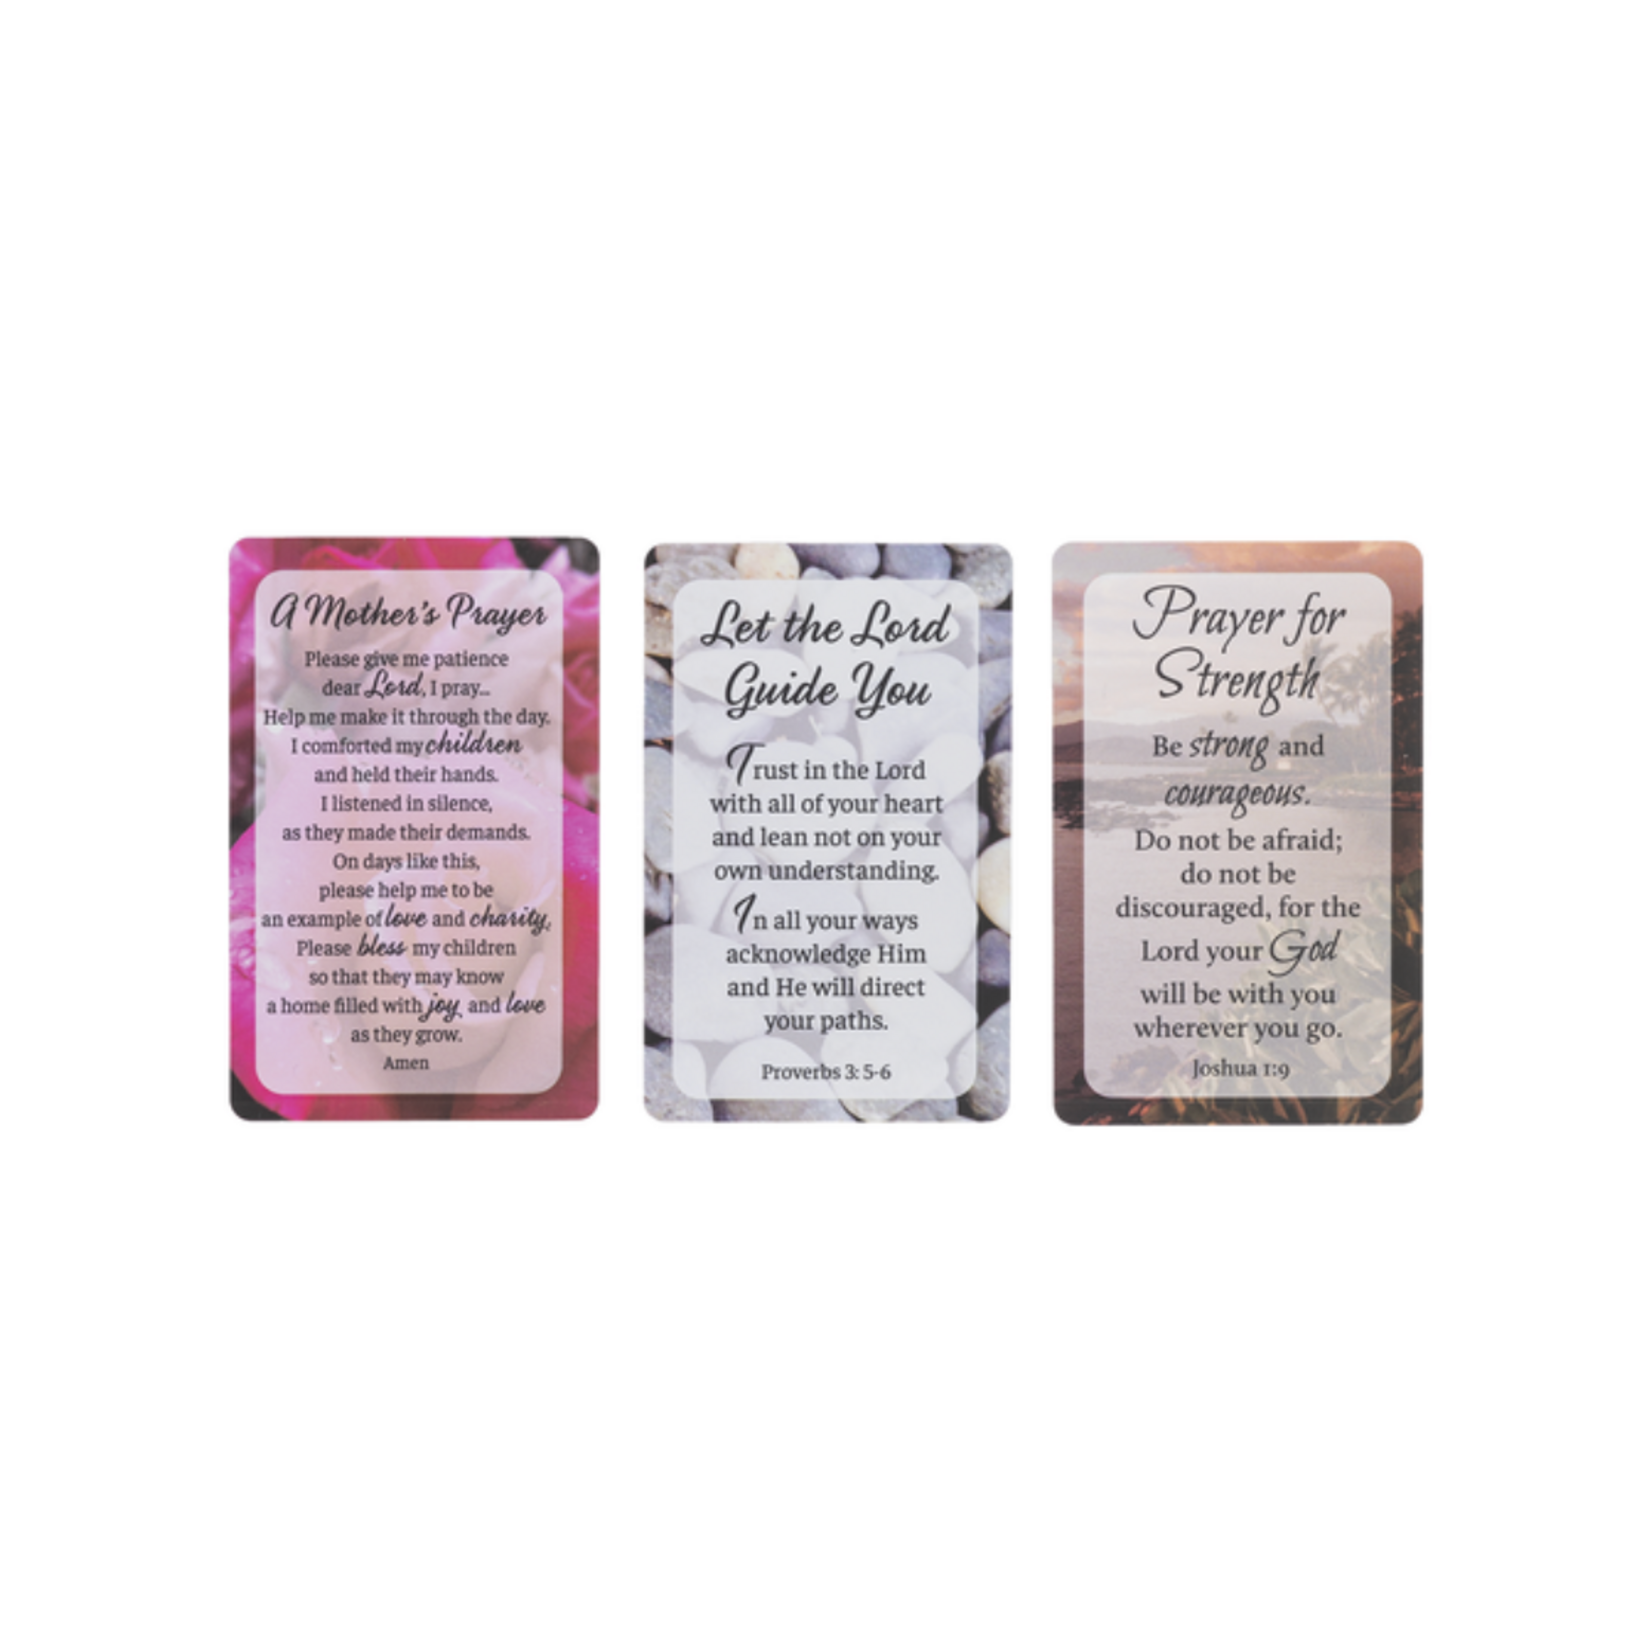 A Mother's Prayer
Please give me patience
dear Lord, I pray...
Help me make it through the day.
I comforted my children
and held their hands.
I listened in silence,
as they made their demands.
On days like this,
please help me to be
an example of love and charity,
Please bless my children
so that they may know
a home filled with joy and love
as they grow.
Amen
Let the Lord
Guide You
Trust in the Lord
with all of your heart
and lean not on your
own understanding.
In all your ways
acknowledge Him
and He will direct
your paths.
Proverbs 3: 5-6
Prayer for
Strength
Be strong and
courageous.
Do not be afraid;
do not be
discouraged, for the
Lord your God
will be with you
wherever you go.
Joshua 1:9